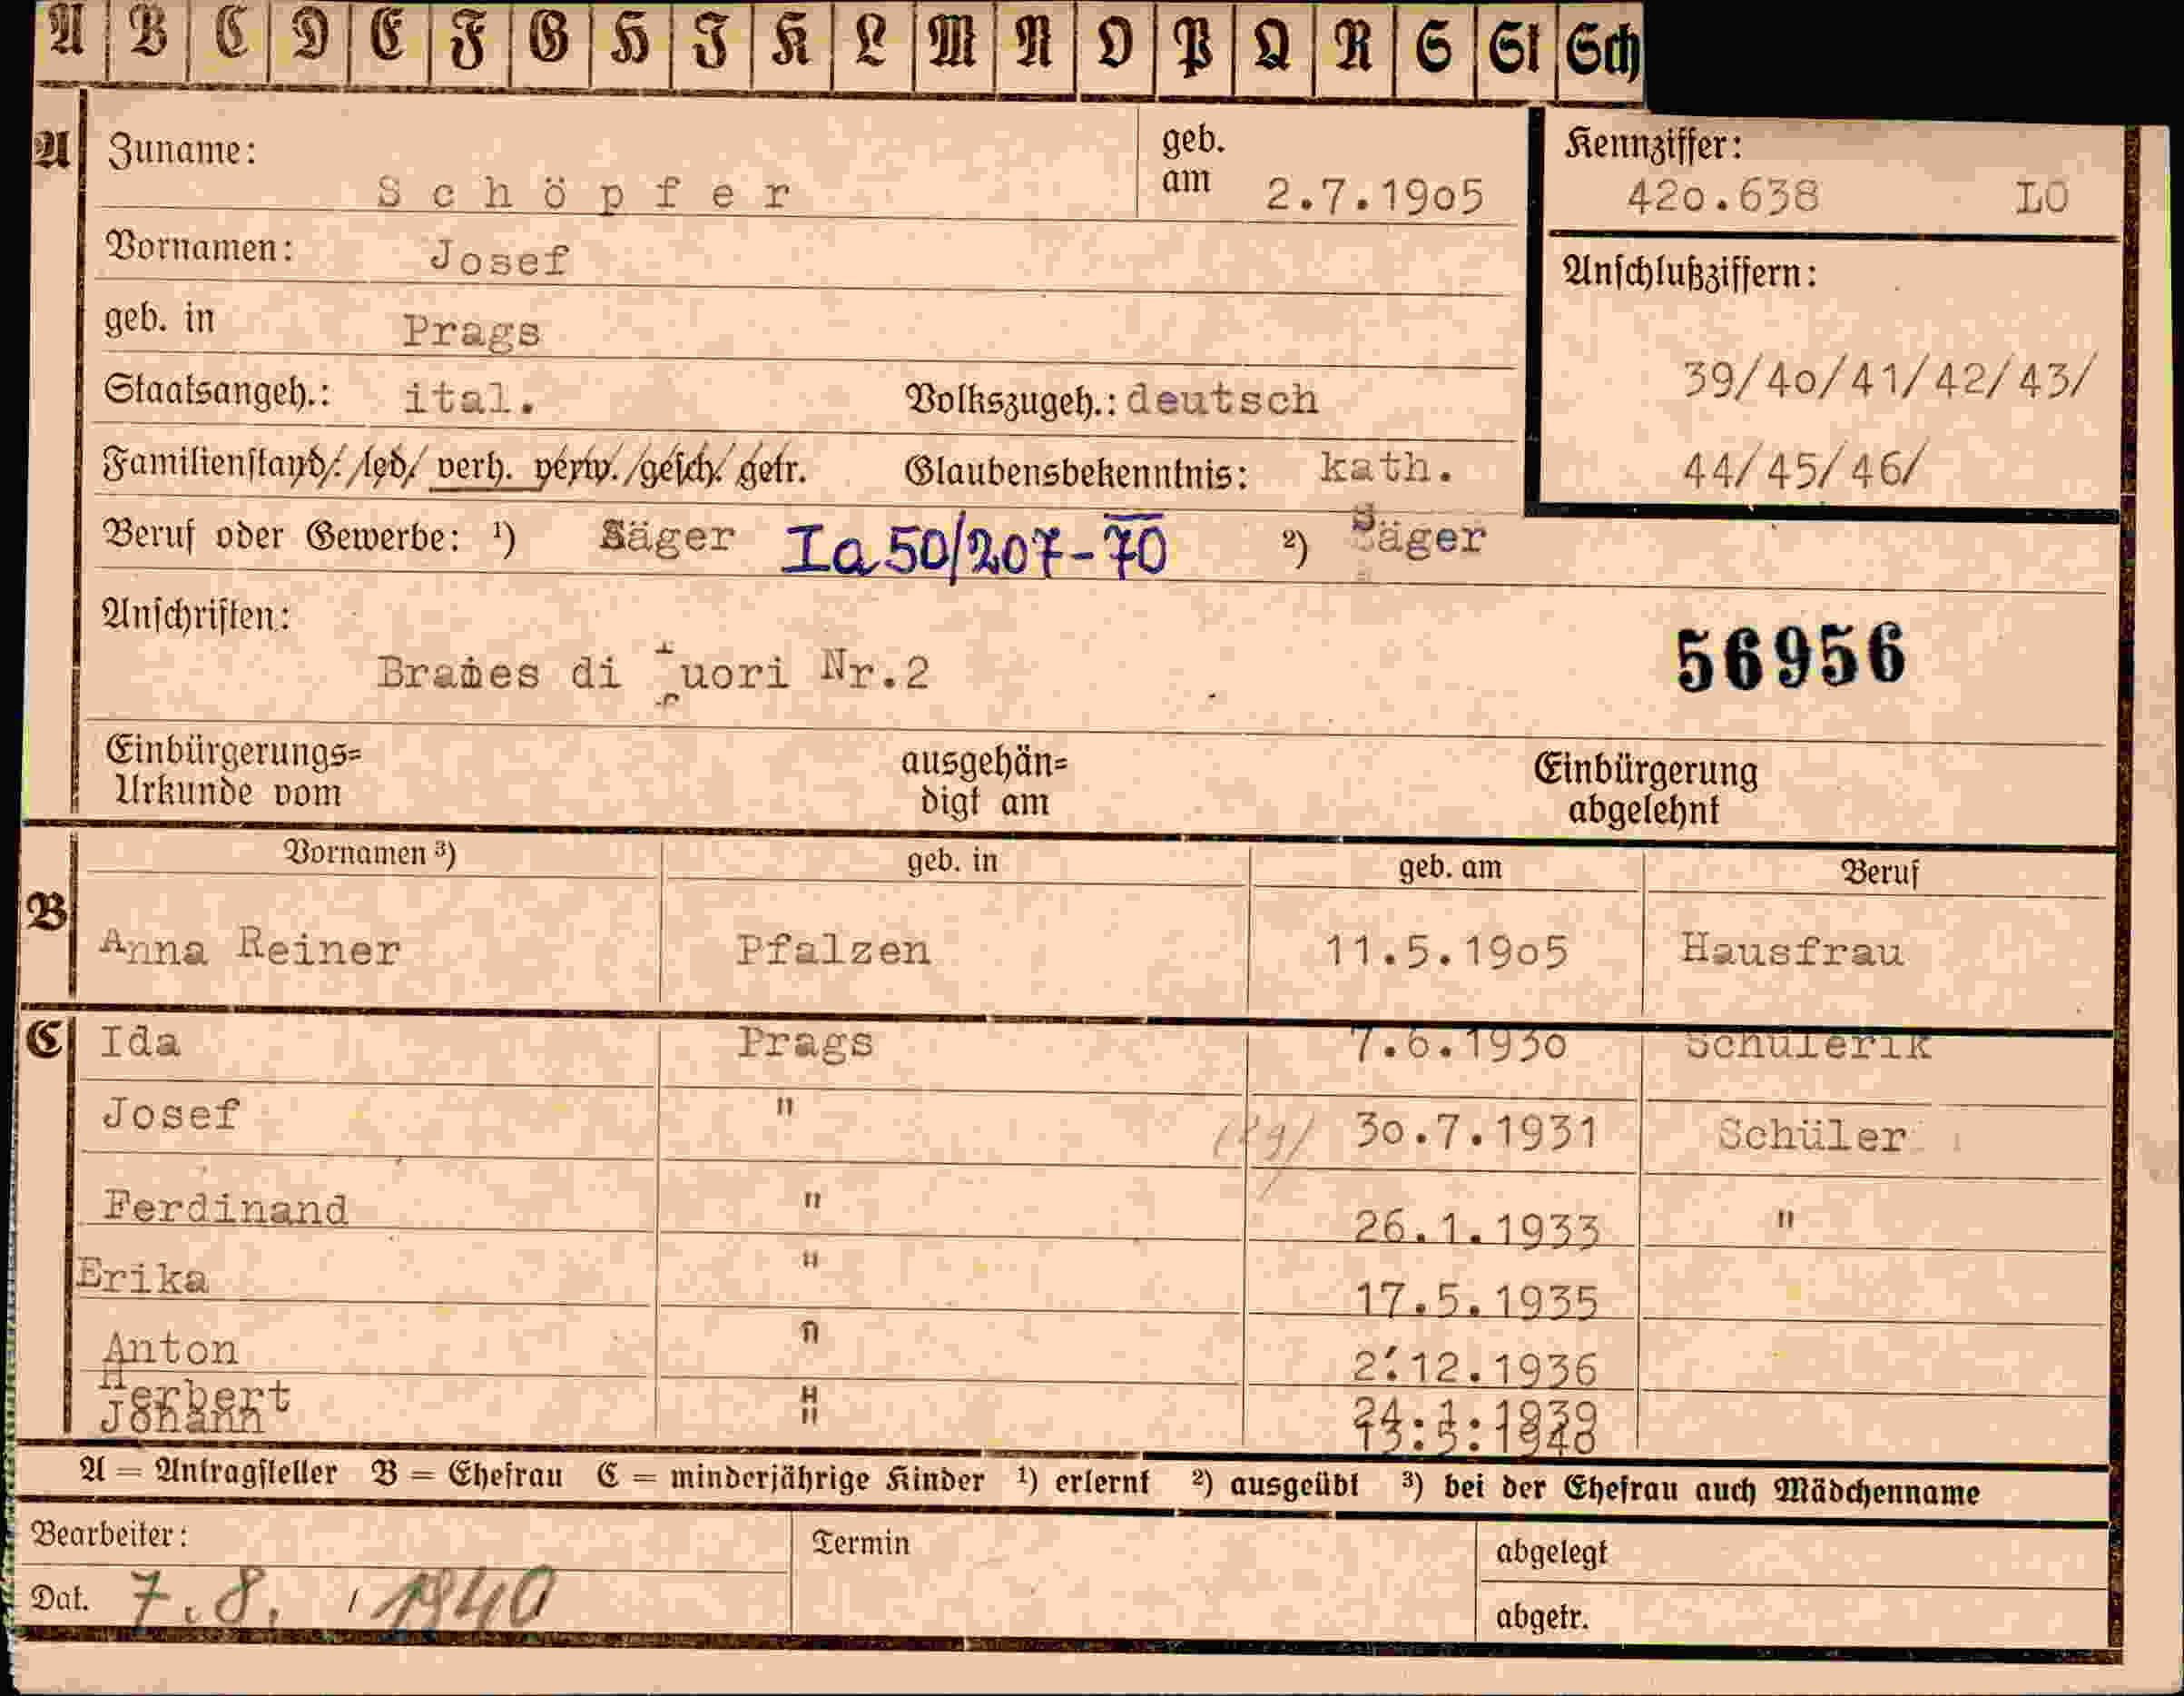 A B C D E F G H I K L M N O P Q R S St Sch
A Zuname: Schöpfer geb. am 2.7.1905 Kennziffer: 420.638 LO
Vornamen: Josef
geb. in Prags
Anschlußziffern:
39/40/41/42/43/
44/45/46/
Staatsangeh.: ital. Volkszugeh.: deutsch
Familienstand: led. verh. verw. gesch. getr. Glaubensbekenntnis: kath.
Beruf oder Gewerbe: ¹) Säger Ia 50/207-70 ²) Säger
Anschriften:
Braies di fuori Nr.2 56956
Einbürgerungs= Urkunde vom ausgehän= digt am Einbürgerung abgelehnt
Vornamen ³) geb. in geb. am Beruf
B Anna Reiner Pfalzen 11.5.1905 Hausfrau
C Ida Prags 7.6.1930 Schülerik
Josef " 30.7.1931 Schüler
Ferdinand " 26.1.1933 "
Erika " 17.5.1935
Anton " 2.12.1936
Herbert "
Johann "
A = Antragsteller B = Ehefrau C = minderjährige Kinder ¹) erlernt ²) ausgeübt ³) bei der Ehefrau auch Mädchenname
Bearbeiter: Termin abgelegt
Dat. 7.8. / 1940 abgetr.